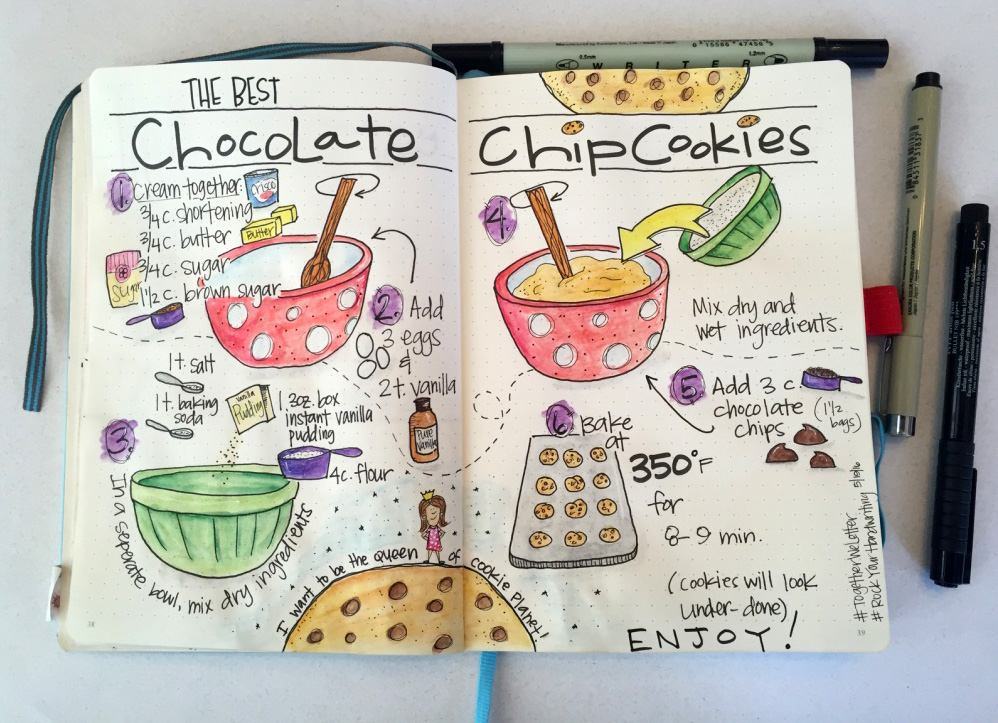 THE BEST
ChocoLate
1. cream together:
Crisco
3/4 c. shortening
3/4 c. butter
Butter
3/4 c. sugar
Sugar
1 1/2 c. brown sugar
2. Add
3 eggs
&
2 t. vanilla
Pure
Vanilla
1 t. salt
1 t. baking
soda
3.
Vanilla
Pudding
1 3oz. box
instant vanilla
pudding
4 c. flour
In a seperate bowl, mix dry ingredients
I want to be the queen of cookie planet!
38
Chip Cookies
4.
Mix dry and
wet ingredients.
5 Add 3 c.
chocolate
chips
(1 1/2
bags)
6. Bake
at
350°F
for
8-9 min.
(cookies will look
under-done)
ENJOY!
#TogetherWeLetter 5/18/16
#RockYourHandwriting
39
WRITER
0.5mm
1.2mm
1.5